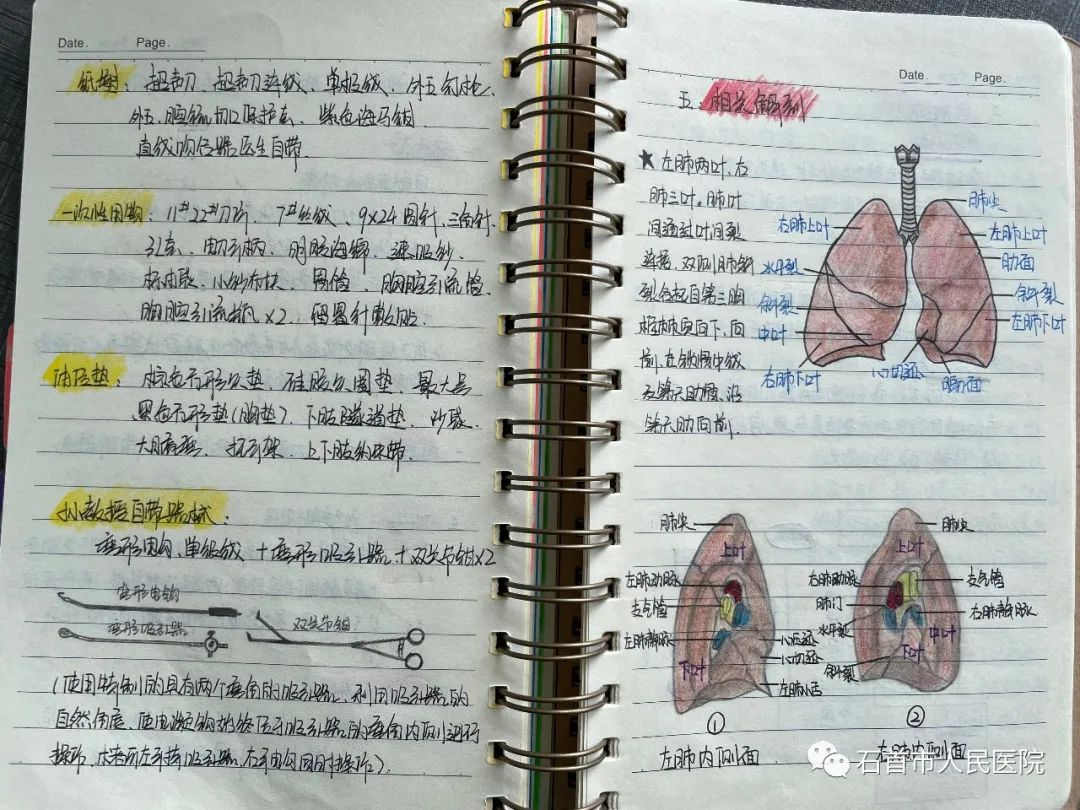 Date. Page.
纸塑：超声刀、超声刀连线、单极线、外五钉枪、
外五腔镜切口保护套、紫色海马钳
直线吻合器医生自带.
一次性用物：11# 22#刀片、7#丝线、9×24圆针、三角针、
引流、电刀柄、胸腔海绵、速吸纱、
小纱布块、胃管、胸腔引流管、
胸腔引流瓶×2、留置针敷贴.
体位垫：棕色方形头垫 硅胶头圈垫、最大号
黑色方形垫(胸垫)、下肢隧道垫、沙袋、
托手架、上下肢约束带.
教授自带器械：
弯形电钩、单极线 + 弯形吸引器 + 双关节钳×2
弯形电钩
弯形吸引器
双关节钳
(使用特制的具有两个弯角的吸引器、利用吸引器的
自然角度、使电凝钩始终位于吸引器的弯角内侧进行
操作、术者可左手持吸引器、右手电钩同时操作).
Date. Page.
五、相关解剖
★左肺两叶、右
肺三叶。肺叶
间通过叶间裂
连接、双侧肺斜
裂各起自第三胸
椎棘突向下、向
前、在锁骨中线
与第六肋骨、沿
第六肋向前.
肺尖
右肺上叶
左肺上叶
肋面
水平裂
斜裂
斜裂
中叶
左肺下叶
右肺下叶
心切迹
膈面
肺尖
上叶
左肺动脉
支气管
左肺静脉
心压迹
心切迹
下叶
左肺小舌
①
左肺内侧面
肺尖
上叶
右肺动脉
支气管
肺门
右肺静脉
水平裂
中叶
下叶
斜裂
②
右肺内侧面
石首市人民医院